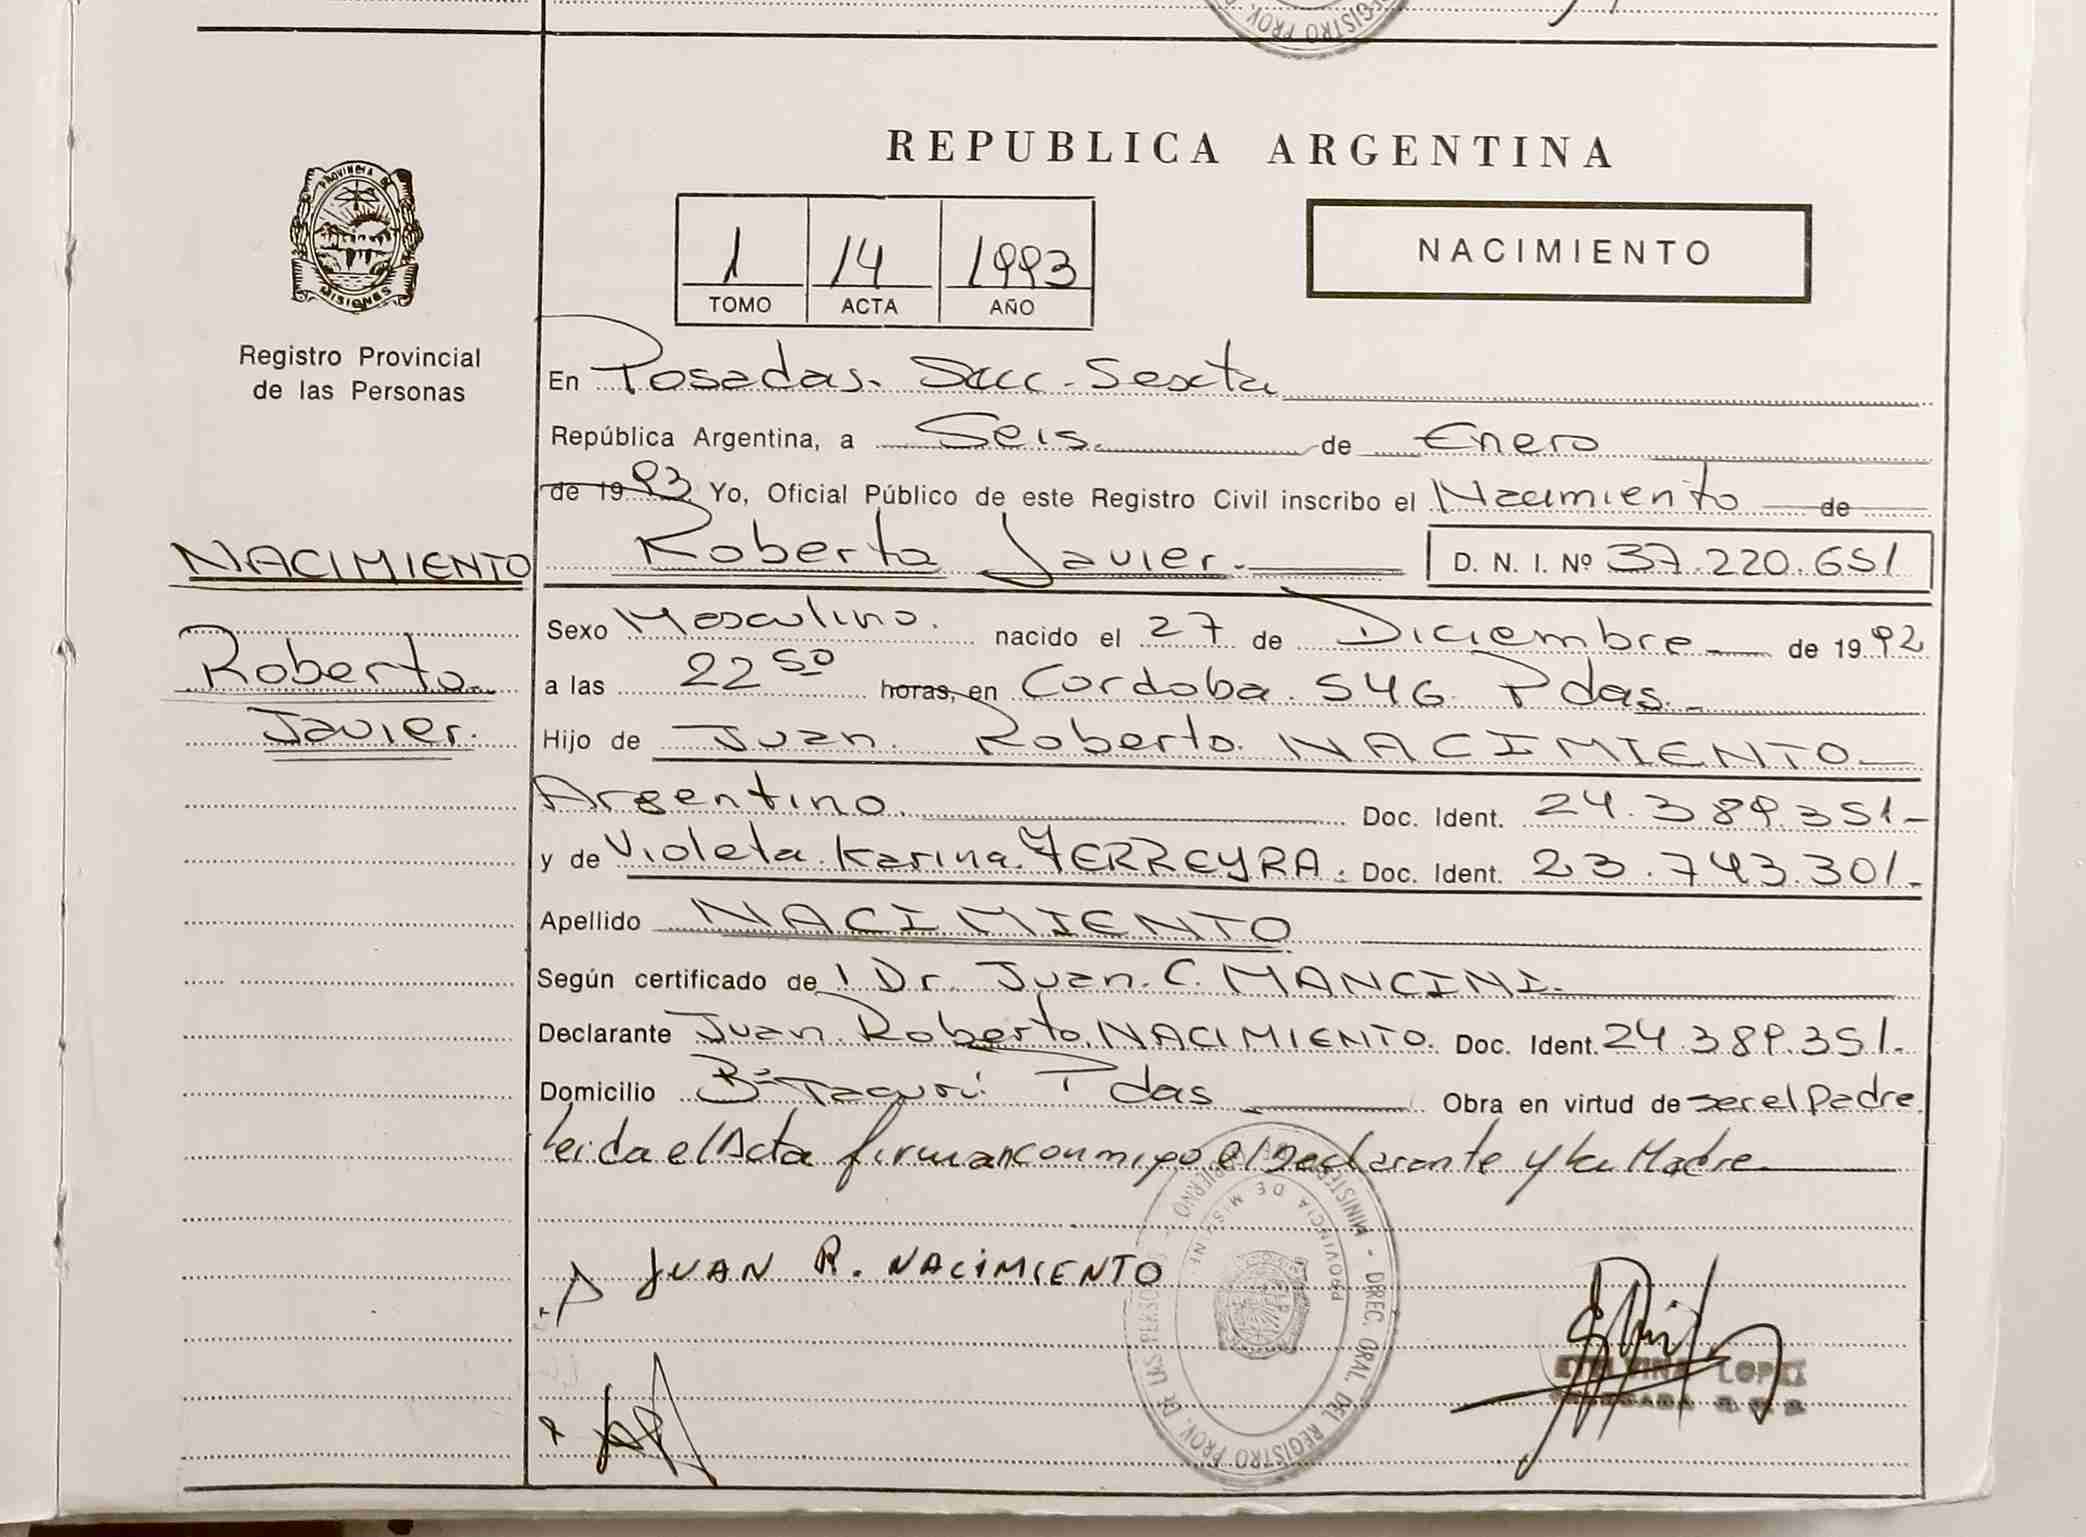 REPUBLICA ARGENTINA
PROVINCIA DE
MISIONES
Registro Provincial
de las Personas
1 14 1993
TOMO ACTA AÑO
NACIMIENTO
En Posadas. Secc. Sexta
República Argentina, a Seis. de Enero
de 1993 Yo, Oficial Público de este Registro Civil inscribo el Nacimiento de
Roberto Javier. D. N. I. Nº 37.220.651
NACIMIENTO
Roberto
Javier.
Sexo Masculino. nacido el 27 de Diciembre de 1992
a las 22 50 horas, en Cordoba 546 Pdas.
Hijo de Juan Roberto NACIMIENTO
Argentino Doc. Ident. 24.389.351.-
y de Violeta Karina FERREYRA. Doc. Ident. 23.743.301.-
Apellido NACIMIENTO
Según certificado de l Dr. Juan C. MANCINI.
Declarante Juan Roberto NACIMIENTO. Doc. Ident. 24.389.351.-
Domicilio Bº Tacurí Pdas Obra en virtud de ser el Padre
Leida el Acta firman conmigo el Declarante y la Madre
JUAN R. NACIMIENTO
MINISTER GOBIERNO - DIREC. GRAL. DEL REGISTRO PROV. DE LAS PERSO
PROVINCIA DE MISIONES
LOPEZ